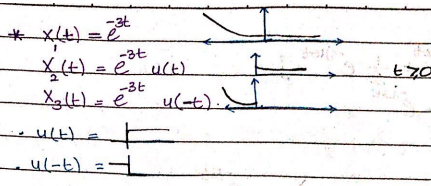 * x₁(t) = e^-3t
x₂(t) = e^-3t u(t) t≥0
x₃(t) = e^-3t u(-t).
. u(t) =
. u(-t) =